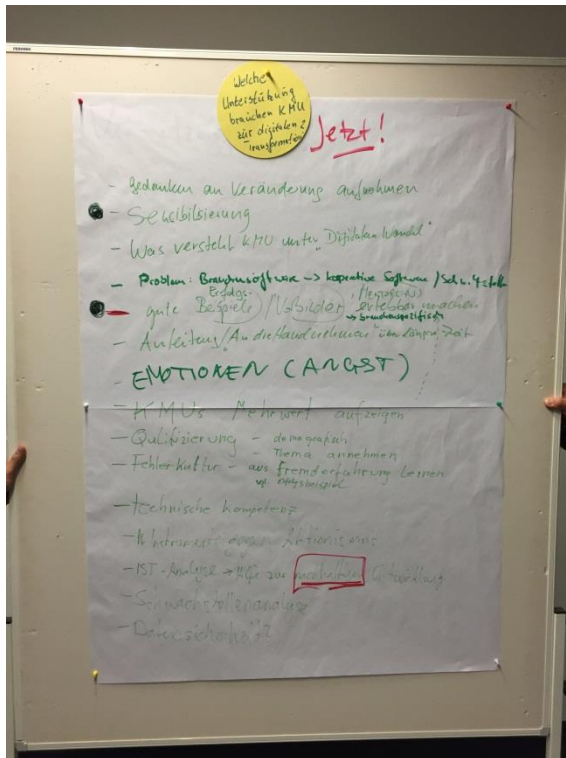 Welche
Unterstützung
brauchen KMU
zur digitalen
Transformation?
Jetzt!
- Gedanken an Veränderung aufnehmen
- Sensibilisierung
- Was versteht KMU unter "Digitalem Wandel"
- Problem: Branchensoftware -> kooperative Software /
Erfolgs-
- gute Beispiele / Vorbilder erlebbar machen
-> branchenspezifisch
- Anleitung / "An die Hand nehmen" über längere Zeit
- EMOTIONEN (ANGST)
- KMUs Mehrwert aufzeigen
- Qulifizierung - demografisch
- Thema annehmen
- Fehlerkultur - aus Fremderfahrung lernen
vgl. Erfolgsbeispiel
- technische Kompetenz
- gegen Aktionismus
- IST-Analyse -> Hilfe zur Entwicklung
- Schwachstellenanalyse
- Datensicherheit?